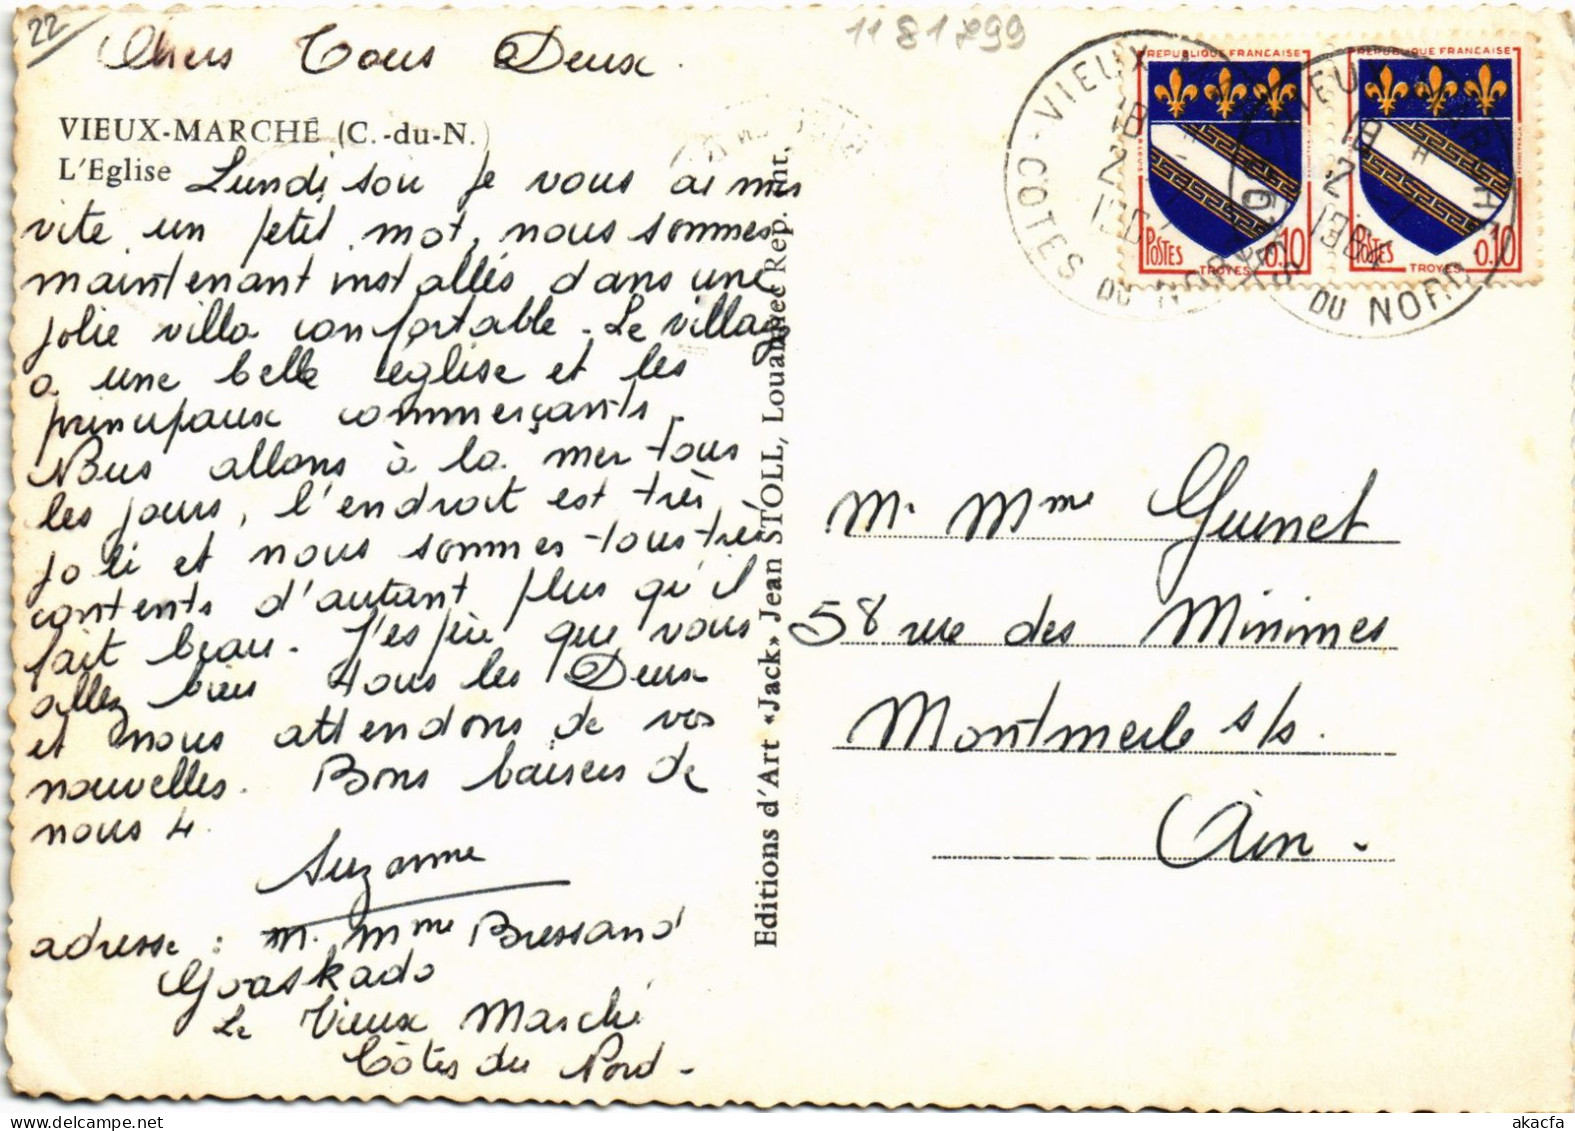 22
1181799
Chers Tous Deux.
VIEUX-MARCHÉ (C.-du-N.)
L'Eglise
Lundi soir je vous ai mis
vite un petit mot, nous sommes
maintenant installés dans une
jolie villa confortable. Le village
a une belle église et les
principaux commerçants.
Nous allons à la mer tous
les jours, l'endroit est très
joli et nous sommes tous très
contents d'autant plus qu'il
fait beau. J'espère que vous
allez bien tous les Deux
et nous attendons de vos
nouvelles. Bons baisers de
nous 4.
Suzanne
adresse : M. Mme Bressand
Goaskado
Le Vieux Marché
Côtes du Nord.
Editions d'Art «Jack» Jean STOLL, Louannec Rep. int.
REPUBLIQUE FRANÇAISE
POSTES 0,10
TROYES
REPUBLIQUE FRANÇAISE
POSTES 0,10
TROYES
VIEUX
18 H
2
COTES DU NORD
18 H
2
1964
COTES DU NORD
M. Mme Guinet
58 rue des Minimes
Montmerle s/s.
Ain.
akacfa
www.delcampe.net